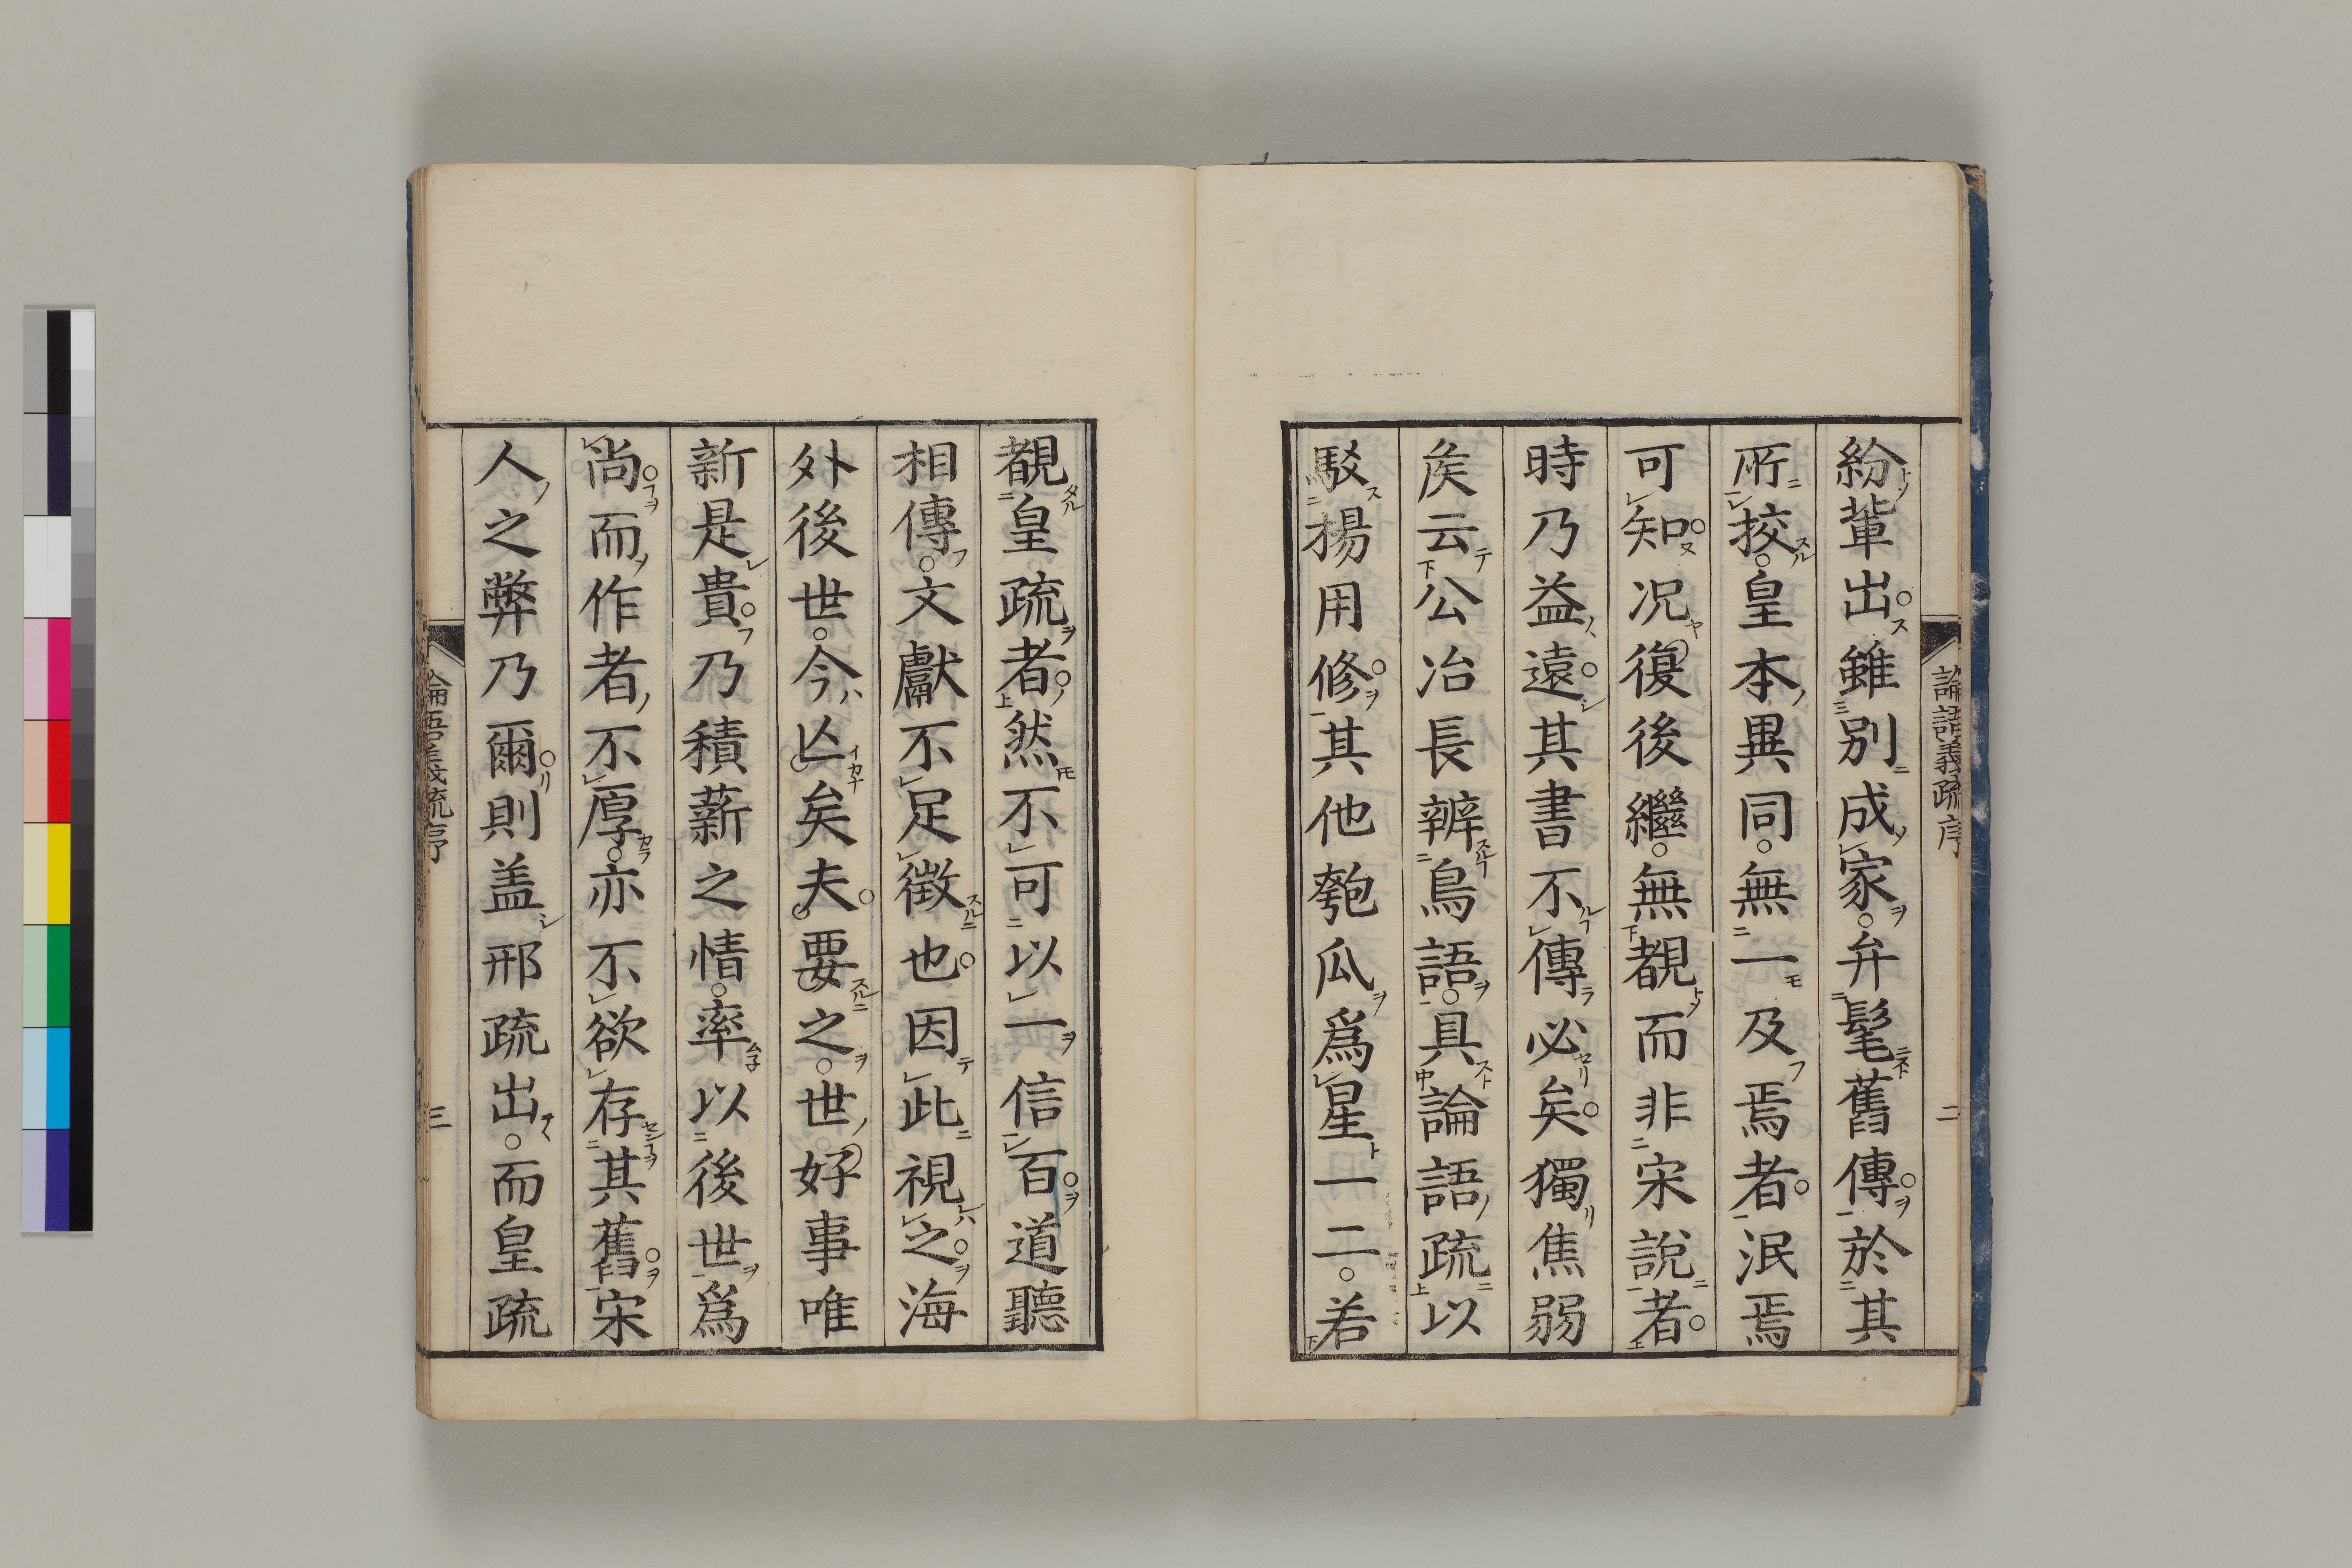 論語義疏序
二
紛輩出雖別成家弁髦舊傳於其
所挍皇本異同無一及焉者泯焉
可知况復後繼無覩而非宋說者
時乃益遠其書不傳必矣獨焦弱
矦云公冶長辨鳥語具論語疏以
駁揚用修其他匏瓜爲星一二若
覩皇疏者然不可以一信百道聽
相傳文獻不足徵也因此視之海
外後世今亾矣夫要之世好事唯
新是貴乃積薪之情率以後世爲
尚而作者不厚亦不欲存其舊宋
人之弊乃爾則盖邢疏出而皇疏
論語義疏序
三